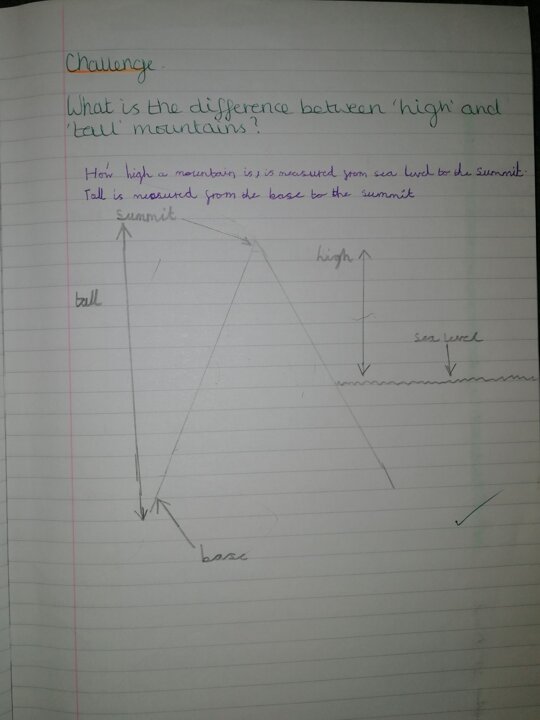 Challenge
What is the difference between 'high' and
'tall' mountains?
How high a mountain is, is measured from sea level to the summit.
Tall is measured from the base to the summit
summit
high
tall
sea level
base